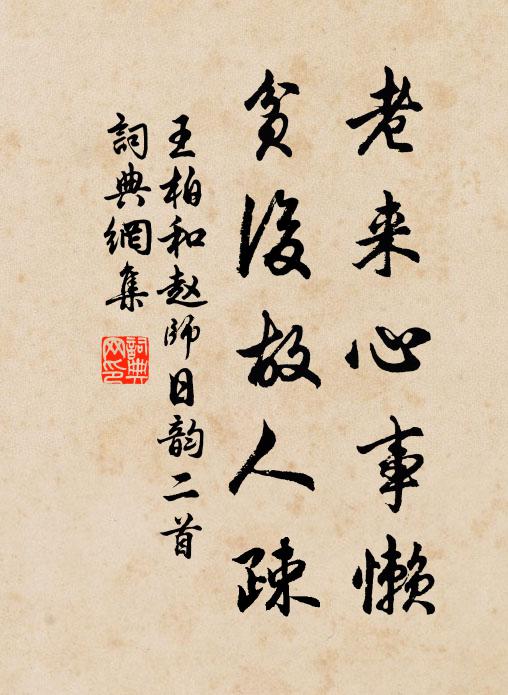 老来心事懒
贫後故人疎
王柏和赵師日韵二首
詞典網集
詞典网印